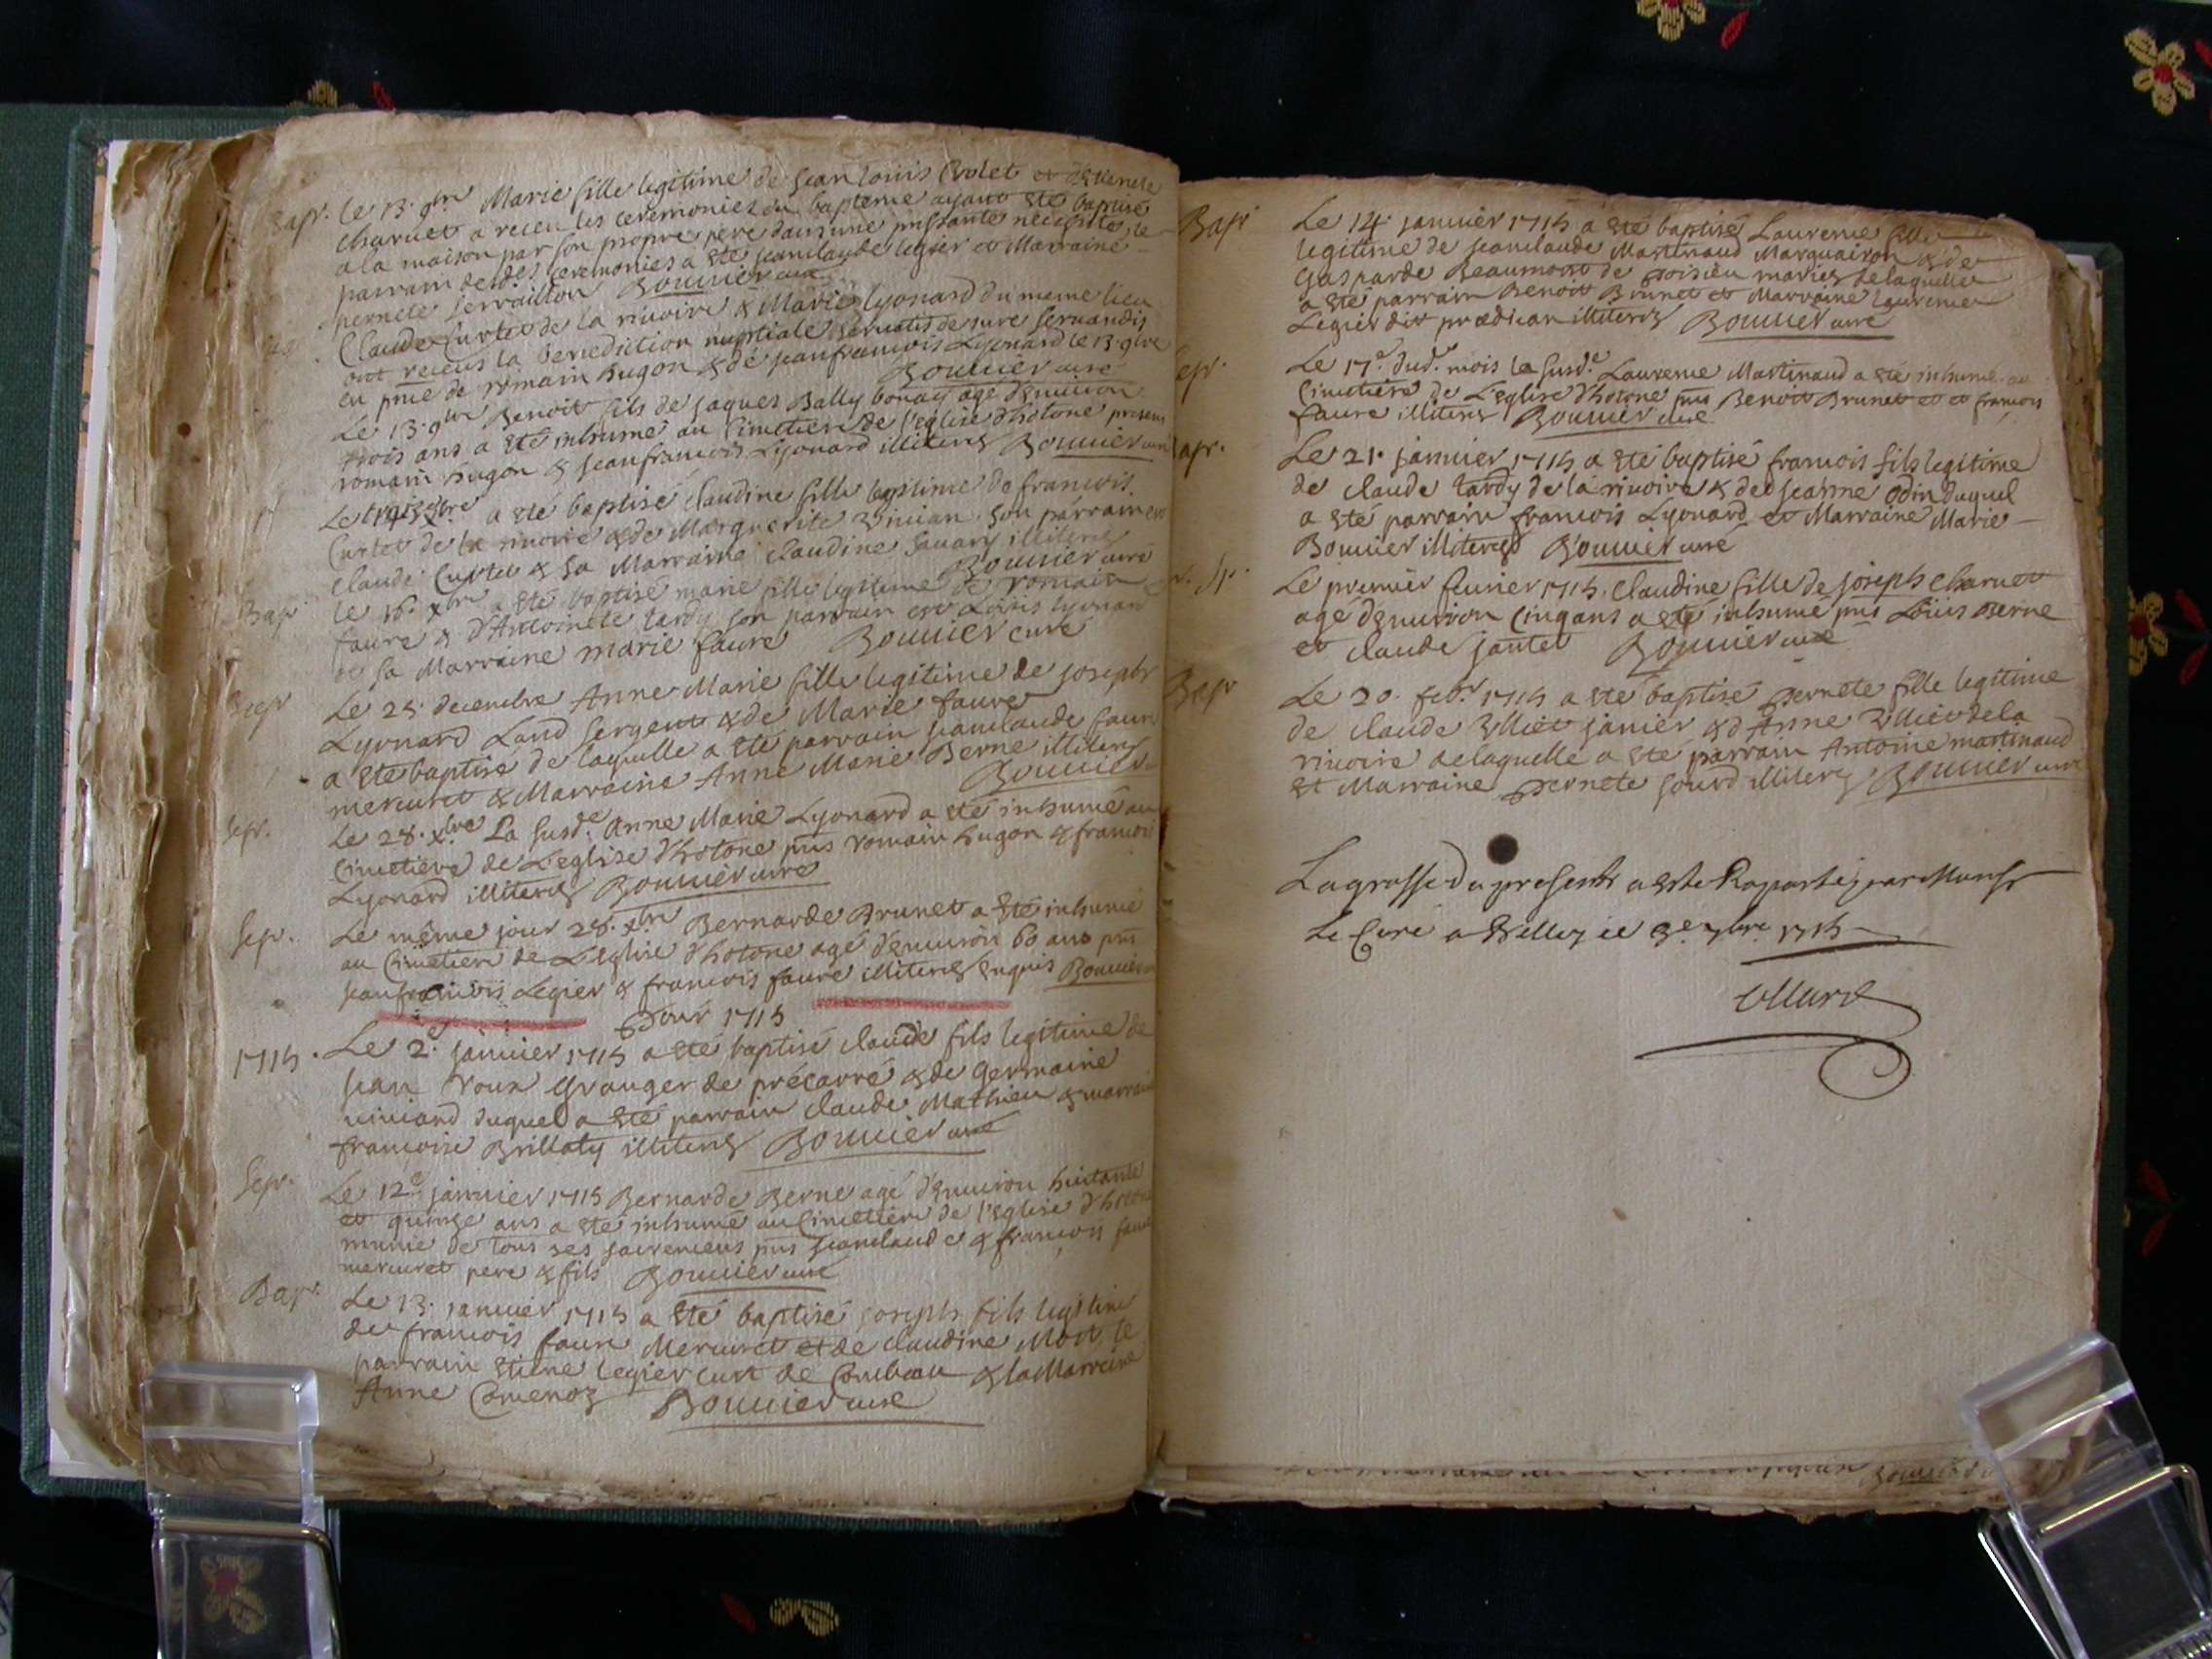 Bapt. Le 13. 9bre Marie fille legitime de Jean Louis et de
Charvet a receu les ceremonies du bapteme ayant été baptisé
a la maison par son propre pere dans une necessité le
parrain desd. ceremonies a été Jeanclaude Legier et Marraine
pernete Servaillon Bouvier curé
Claude Curtet de la rivoire & Marie Lyonard du meme lieu
ont receus la benediction nuptiale servatis de jure servandis
en pnce de romain hugon & de jeanfrancois Lyonard le 13. 9bre
Bouvier curé
Le 13. 9bre Benoit fils de Jaques Bally agé d'environ
trois ans a été inhumé au Cimetiere de l'eglise d'hotone presens
romain hugon & jeanfrancois Lyonard illiterés Bouvier curé
a été baptisé claudine fille legitime de francois
Curtet de la rivoire & de Marguerite son parrain est
claude Curtet & sa Marraine claudine Savary illiterés
Bouvier curé
Bapt le 16. xbre a été baptisé marie fille legitime de romain
faure & d'Antoinete tardy son parrain est Loüis Lyonar
et sa Marraine marie faure Bouvier curé
Le 25. decembre Anne Marie fille legitime de joseph
Lyonard Land sergent & de Marie faure
a été baptisé de laquelle a été parrain jeanclaude faure
mercuret & Marraine Anne Marie Berne illiterés
Bouvier
Sep. Le 28. xbre La susd.e Anne Marie Lyonard a été inhumé au
Cimetiere de L'eglise d'hotone pns romain hugon & francois
Lyonard illiterés Bouvier curé
Sep. Le même jour 28. xbre Bernarde Brunet a été inhumé
au Cimetiere de L'eglise d'hotone agé d'environ 60 ans pns
jeanfrancois Legier & francois faure illiterés enquis Bouvier
Pour 1715
1715. Le 2.e janvier 1715 a été baptisé claude fils legitime de
jean roux granger de précarré & de germaine
viviand duquel a été parrain claude Mathieu & marraine
francoise Brillaty illiterés Bouvier curé
Sep. Le 12.e janvier 1715 Bernarde Berne agé d'environ huitante
et quinze ans a été inhumé au Cimetiere de l'eglise d'hotone
munie de tous ses sacremens pns jeanclaude & francois faure
mercuret pere & fils Bouvier curé
Bap. Le 13. janvier 1715 a été baptisé joseph fils legitime
de francois faure Mercuret et de claudine Mort le
parrain Etiene Legier curt de Combeau & la Marraine
Anne Bouvier curé
Bapt Le 14. janvier 1715 a été baptisé Laurence fille
legitime de jeanclaude Martinaud Marquairon & de
Gasparde Beaumont de poisieu mariés delaquelle
a été parrain Benoit Brunet et Marraine Laurence
Legier dit prædican illiterés Bouvier curé
Sep. Le 17.e dud. mois la susd.e Laurence Martinaud a été inhumé au
Cimetiere de L'eglise d'hotone pns Benoit Brunet et francois
faure illiterés Bouvier curé
Bapt. Le 21. janvier 1715 a été baptisé francois fils legitime
de claude tardy de la rivoire & de jeanne Odin duquel
a été parrain francois Lyonard et Marraine Marie
Bouvier illiterés Bouvier curé
Le premier fevrier 1715. Claudine fille de joseph charvet
agé d'environ cinq ans a été inhumé pns Loüis Berne
et claude jantet Bouvier curé
Bapt Le 20. feb.r 1715 a été baptisé Pernete fille legitime
de claude janier & d'Anne de la
rivoire delaquelle a été parrain Antoine martinaud
et Marraine Pernete gourd illiterés Bouvier curé
La grosse du present a esté Raporté par Monsr
Le Curé a Belley ce 3e 7bre 1715